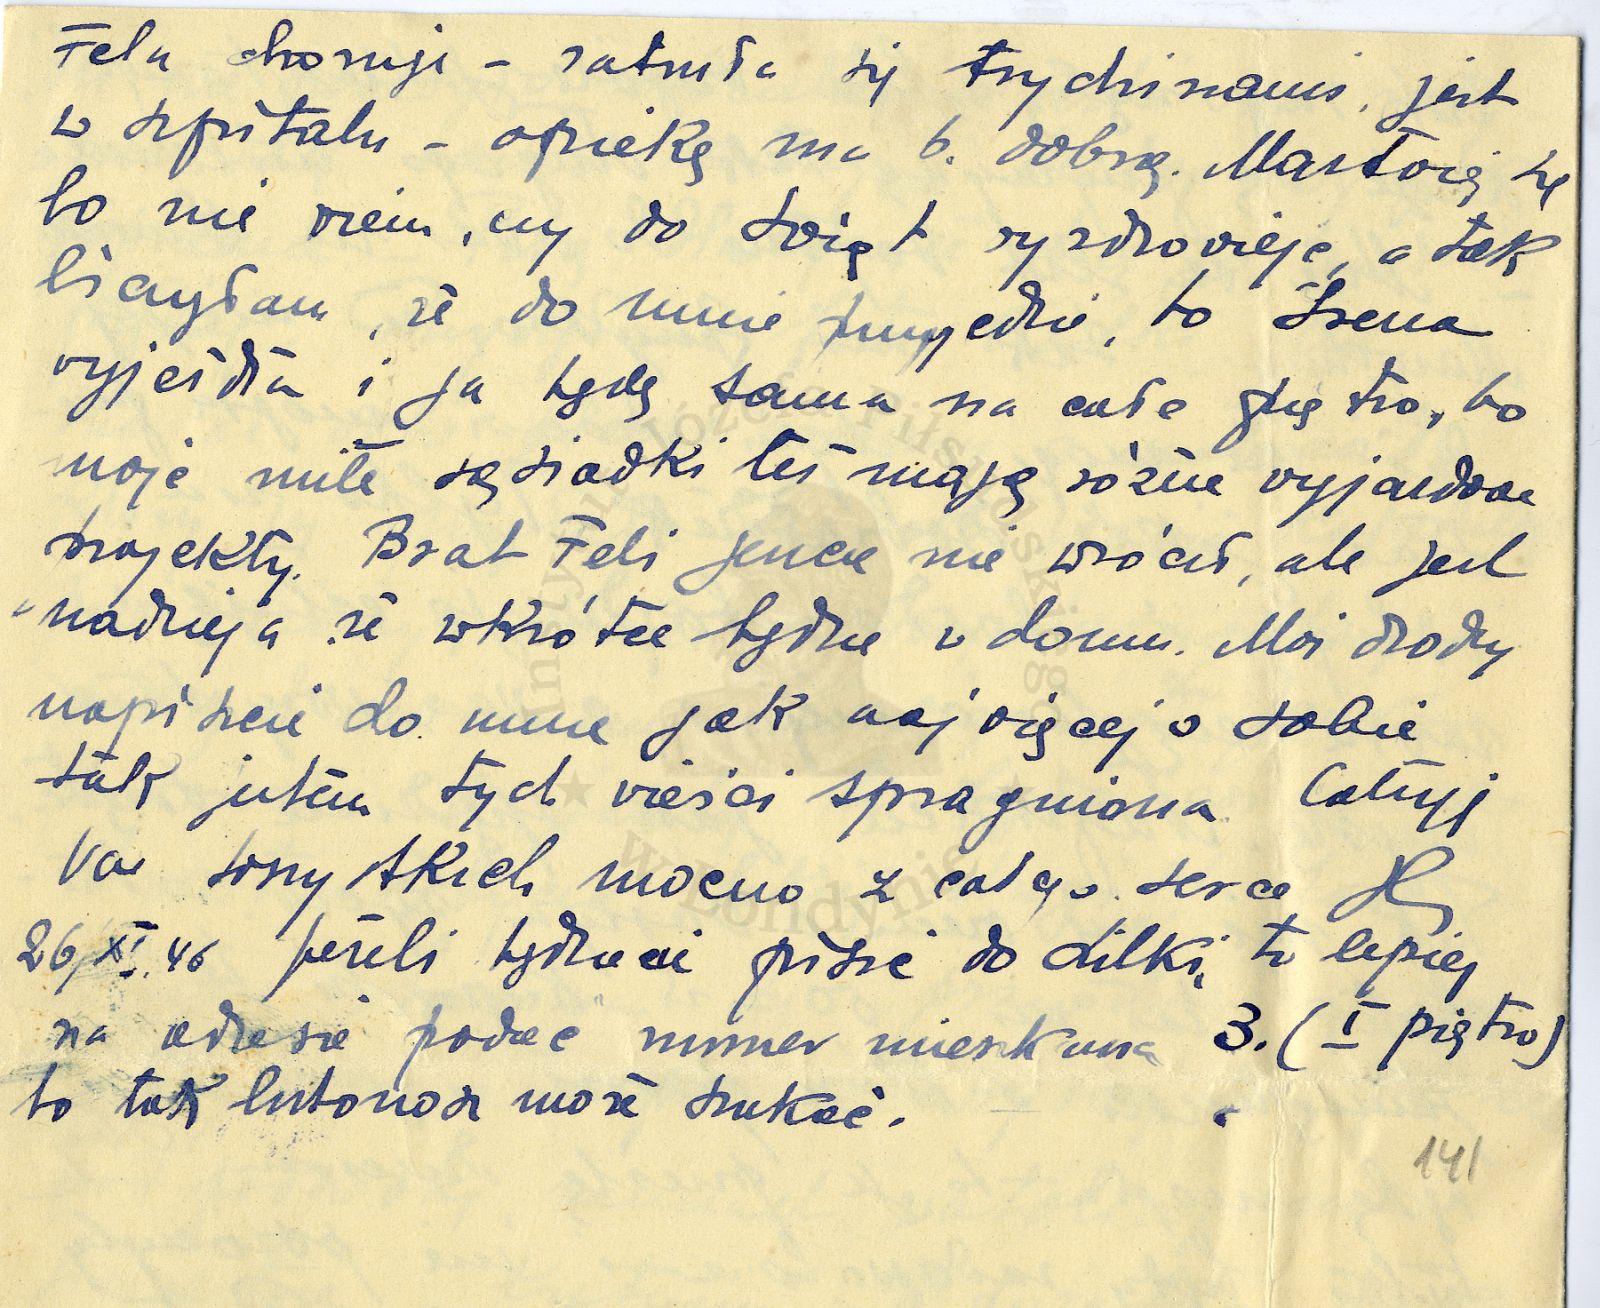 Fela choruje – zatruła się trychinami, jest
w szpitalu – opiekę ma b. dobrą. Martwię się
bo nie wiem, czy do świąt wyzdrowieje, a tak
liczyłam, że do mnie przyjedzie, bo Irena
wyjeżdża i ja będę sama na całe piętro, bo
moje miłe sąsiadki też mają różne wyjazdowe
projekty. Brat Feli jeszcze nie wrócił, ale jest
nadzieja że wkrótce będzie w domu. Moi drodzy
napiszcie do mnie jak najwięcej o sobie
tak jestem tych wieści spragniona. Całuję
Was wszystkich mocno z całego serca H
26/XI.46 Jeżeli będziecie pisać do Lilki, to lepiej
na adresie podać numer mieszkania 3. (I piętro)
bo tak listonosz może szukać.
141
Instytut Józefa Piłsudskiego
w Londynie